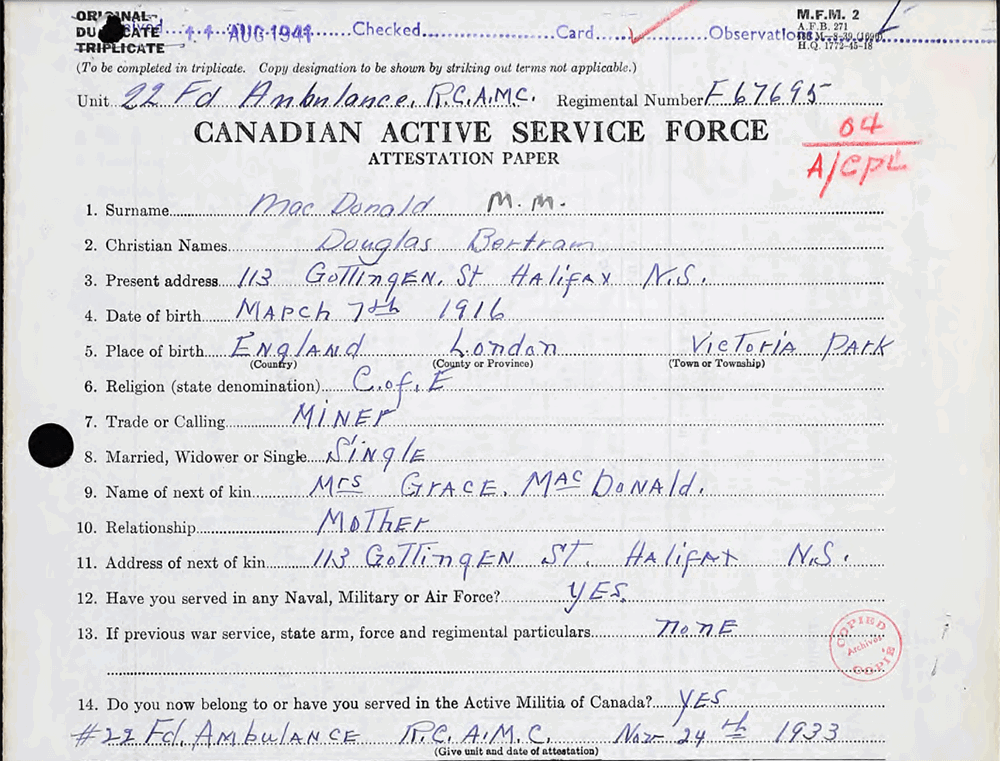 ORIGINAL
DUPLICATE
TRIPLICATE
11 AUG 1941 Checked Card Observations
M.F.M. 2
A.F.B. 271
H.Q. 1772-45-18
(To be completed in triplicate. Copy designation to be shown by striking out terms not applicable.)
Unit 22 Fd Ambulance, R.C.A.M.C. Regimental Number F67695
CANADIAN ACTIVE SERVICE FORCE
ATTESTATION PAPER
04
A/CPL
1. Surname Mac Donald M.M.
2. Christian Names Douglas Bertram
3. Present address 113 GoTTingEN. St HAlifAx N.S.
4. Date of birth MARCh 7th 1916
5. Place of birth ENglANd London VicToRiA PARK
(Country) (County or Province) (Town or Township)
6. Religion (state denomination) C. of. E
7. Trade or Calling MiNEr
8. Married, Widower or Single SiNglE
9. Name of next of kin Mrs GRACE. MAC DoNAld.
10. Relationship MoThEr
11. Address of next of kin 113 GoTTingEN ST. HAlifAx N.S.
12. Have you served in any Naval, Military or Air Force? YES.
13. If previous war service, state arm, force and regimental particulars nonE
COPIED
Archives
COPIÉ
14. Do you now belong to or have you served in the Active Militia of Canada? YES
#22 Fd. AMbulANCE R.C.A.M.C. Nov 24th 1933
(Give unit and date of attestation)